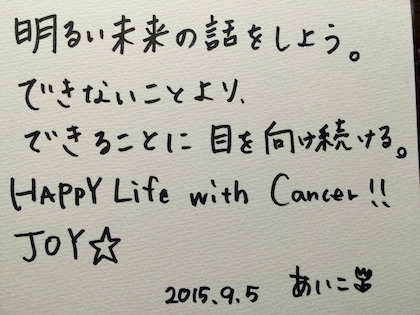 明るい未来の話をしよう。
できないことより、
できることに目を向け続ける。
HAPPY Life with Cancer!!
JOY☆
2015.9.5 あいこ🌷